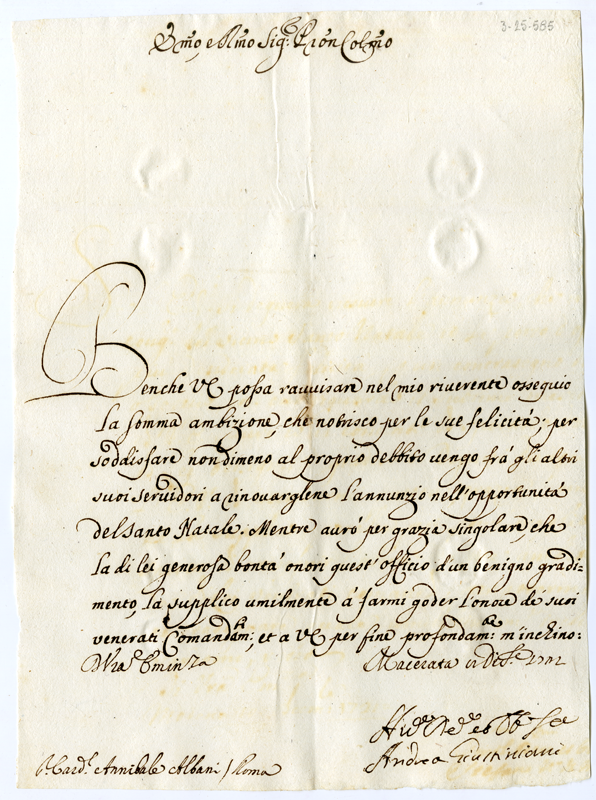 3-25-585
Emo, e Rmo Sig:re Pron Colmo
Benche VE possa rauuisare nel mio riuerente ossequio
la somma ambizione, che notrisco per le sue felicità; per
soddisfare nondimeno al proprio debbito uengo frà gli altri
suoi seruidori a rinouarglene l'annunzio nell'opportunità
del santo Natale. Mentre aurò per grazia singolare, che
la di lei generosa bontà onori quest'officio d'un benigno gradi=
mento, la supplico umilmente à farmi goder l'onore de' suoi
uenerati Comandamti; et a VE per fine profondamte m'inchino:
D Vra Eminza
Macerata Xbre
Andrea Giustiniani
Sr Cardl Annibale Albani / Roma